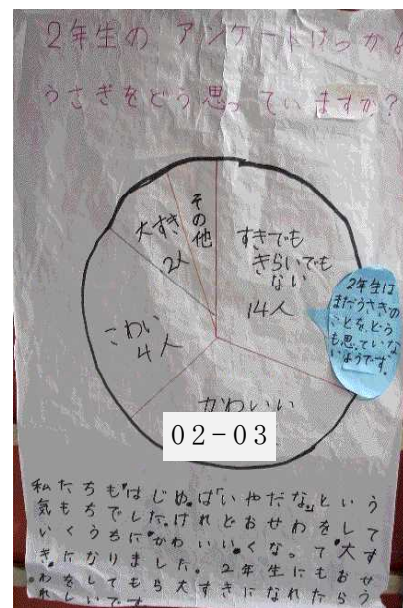 2年生の アンケートけっか
うさぎをどう思っていますか?
その他
大すき
2人
すきでも
きらいでも
ない
14人
こわい
4人
かわいい
2年生は
まだうさぎの
ことをどう
も思っていな
いようです。
02-03
私たちもはじめは「いやだな」という
気もちでした。けれどおせわをして
大す
きになりました。2年生にも
大すきになれたら